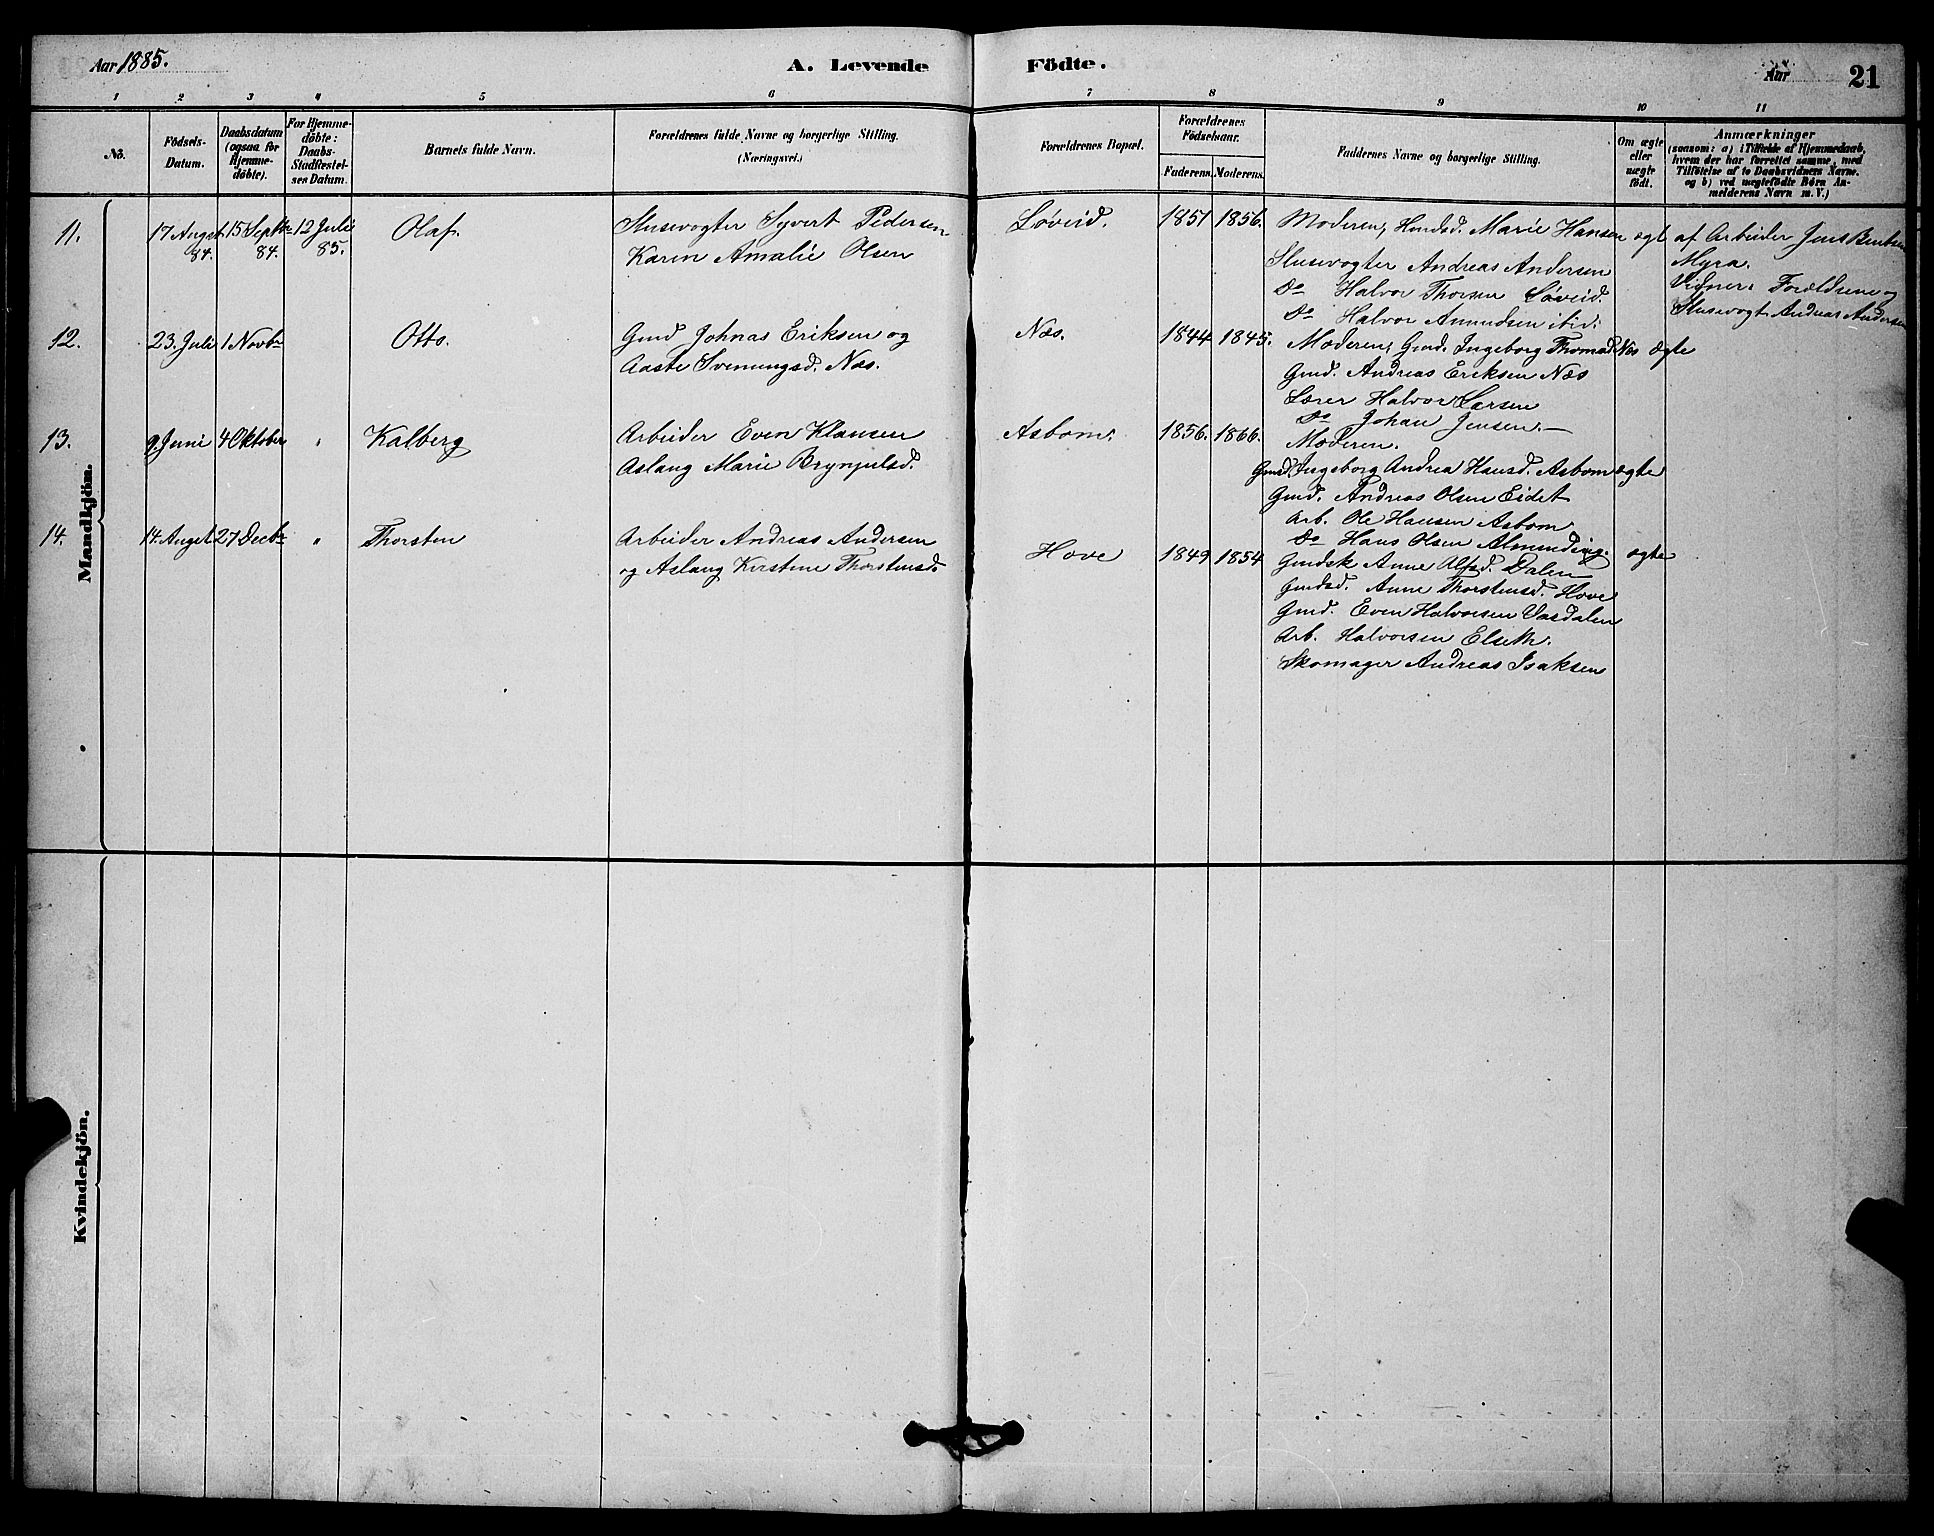 Aar 1885.
A. Levende Födte.
Aar 21
1 2 3 4 5 6 7 8 9 10 11
No.
Födsels-
Datum.
Daabsdatum
(ogsaa for
Hjemme-
döbte).
For Hjemme-
döbte:
Daabs-
Stadfæstel-
ses Datum.
Barnets fulde Navn.
Forældrenes fulde Navne og borgerlige Stilling.
(Næringsvei.)
Forældrenes Bopæl.
Forældrenes
Födselsaar.
Faderens. Moderens.
Faddernes Navne og borgerlige Stilling.
Om ægte
eller
uægte
födt.
Anmærkninger
(saasom: a) i Tilfælde af Hjemmedaab,
hvem der har forrettet samme, med
Tilföielse af to Daabsvidners Navne.
og b) ved uægtefödte Börn An-
melderens Navn m. V.)
Mandkjön.
11.
17 Augst
84.
15 Septbr
84.
12 Juli
85.
Olaf.
Slusevogter Syvert Pedersen
Karen Amalie Olsen
Løveid.
1851 1856.
Moderen, Hmdsd. Marie Hansen
Slusevogter Andreas Andersen
Do Halvor Thorsen Løveid.
Do Halvor Amundsen ibid.
ægt
af Arbeider Jens Bentsen
Myra.
Vidner: Forældrene og
Slusevogt. Andreas Andersen
12.
23. Juli
1 Novbr
Otto.
Gmd Johnas Eriksen og
Aaste Svenungsd. Næs.
Næs.
1844 1845.
Moderen, Gmd. Ingeborg Thomasd. Næs
Gmd. Andreas Eriksen Næs
Lærer Halvor Larsen
Do Johan Jensen. —
ægte
13.
9 Juni
4 Oktober
"
Kalberg
Arbeider Even Klausen
Aslaug Marie Brynjulsd.
Asbom.
1856. 1866.
Moderen.
Gmdsd Ingeborg Andrea Hansd. Asbom
Gmd. Andreas Olsen Eidet
Arb. Ole Hansen Asbom
Do Hans Olsen Almunding.
ægte
14.
14. Augst.
27 Decbr
"
Thorsten
Arbeider Andreas Andersen
og Aslaug Kirstine Thorstensd.
Hove
1849 1854
Gmdsk Anne Olsd. Dalen
Gmdsd. Anne Thorstensd. Hove
Gmd. Even Halvorsen Vasdalen
Arb. Halvorsen Elseth.
Skomager Andreas Isaksen
ægte
Kvindekjön.